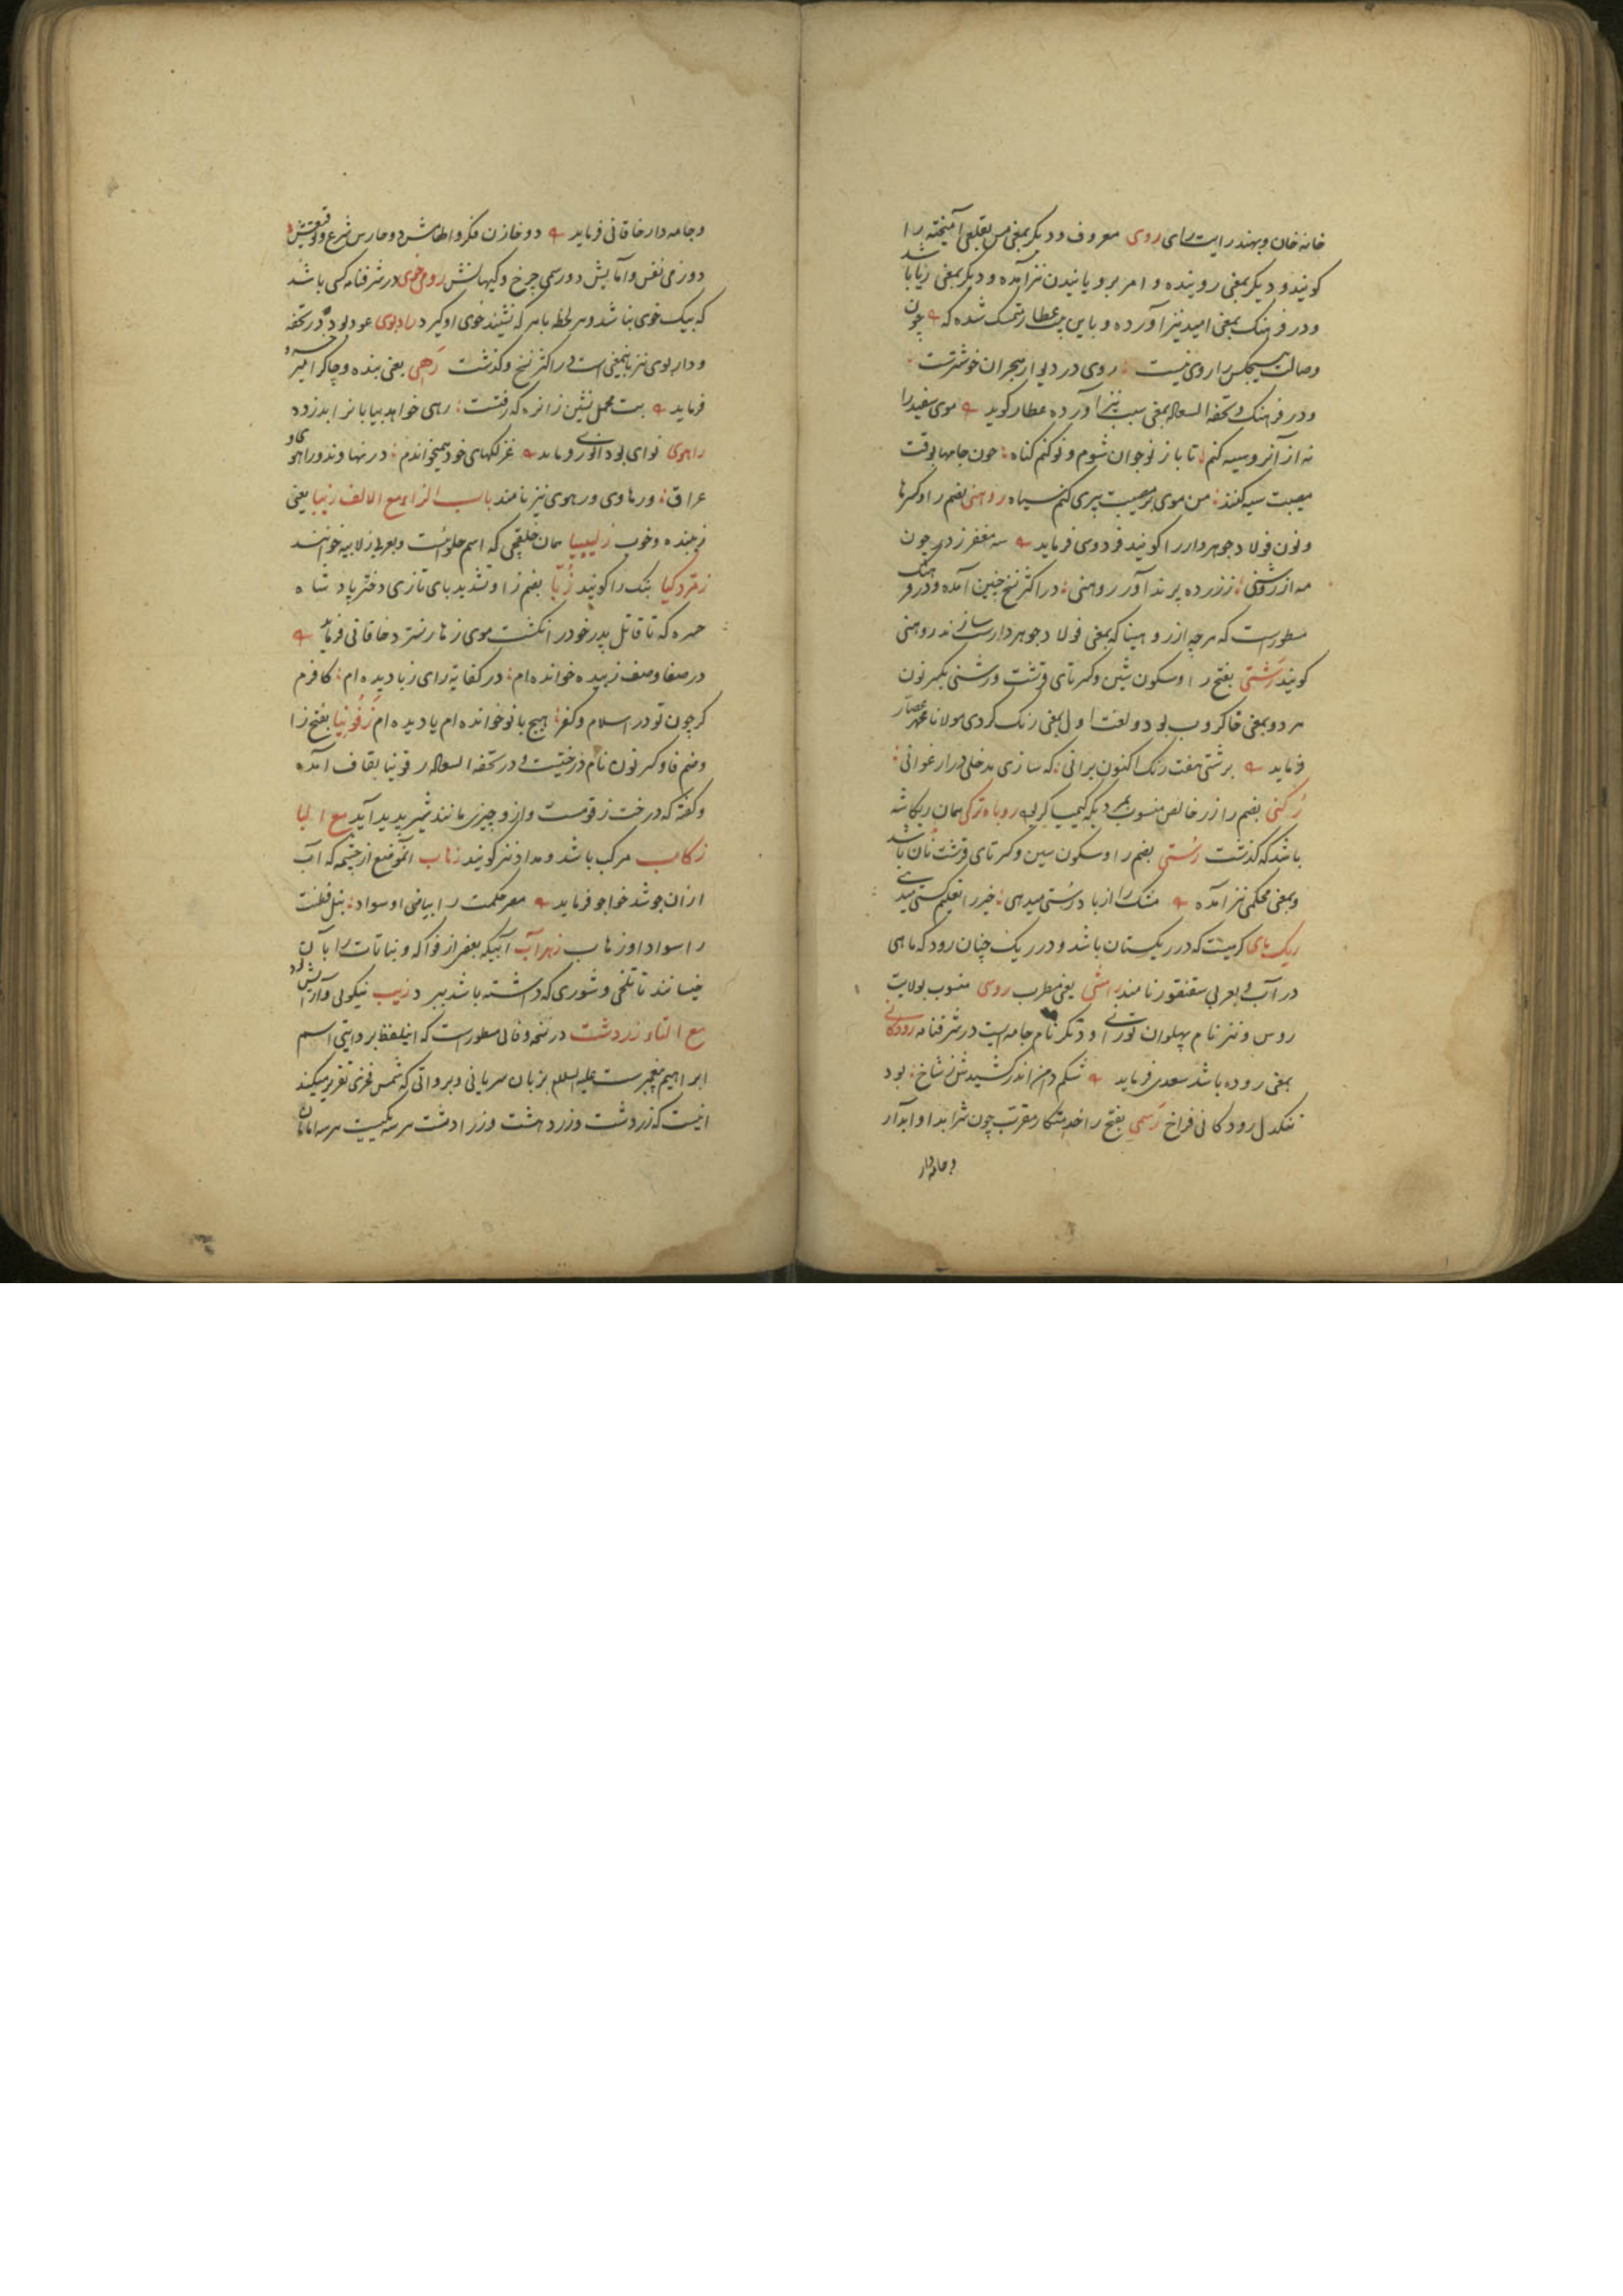 خانه خان و بهند رایست رای روی معروف و دیگر بمعنی مس بقلعی آمیخته را
کویند و دیکر بمعنی روینده و امر برویانیدن نیز آمده و دیکر بمعنی ریا باشد
و در فرهنک بمعنی امید نیز آورده و باین بیت عطار متمسک شده که چون
وصالت هیچکس را روی نیست روی در دیوار هجران خوشترست
و در فرهنک و تحفة السعاده بمعنی سبب نیز آورده عطار کوید موی سفید را
نه از آنرو سیه کنم تا باز نوجوان شوم و نو کنم کناه چون جامها بوقت
مصیبت سیه کنند من موی بر مصیبت پیری کنم سیاه روهنی بضم را و کسر ها
و نون فولاد جوهردار را کویند فردوسی فرماید سه مغفر زده چون
مه از روشنی زره پرند آور روهنی در اکثر نسخ چنین آمده و در فرهنک
مسطورست که هرچه از روهینا که بمعنی فولاد جوهردارست سازند روهنی
کویند رشتی بفتح را و سکون شین و کسر تای قرشت و رشنی بکسر نون
هر دو بمعنی خاکروب بود و لغت اول بمعنی رنک کردی مولانا عصار
فرماید برشتی هفت رنک اکنون برانی که سازی مدخلی در ارغوانی
رکنی بضم را زر خالص منسوب بمردیکه کیمیاکر روباه ترکی همان ریکاشه
باشد که کذشت رستی بضم را و سکون سین و کسر تای قرشت نان باشد
و بمعنی محکمی نیز آمده مشک را از باد رستی میدهی خیر را تعلیم سستی میدهی
ریک ماهی کرمیست که در ریکستان باشد و در ریک چنان رود که ماهی
در آب و بعربی سقنقور نامند رامشی یعنی مطرب روسی منسوب بولایت
روس و نیز نام پهلوان تورانی و دیکر نام جامه ایست در شرفنامه رودکانی
بمعنی روده باشد سعدی فرماید شکم دامن اندر کشیدش ز شاخ بود
تنکدل رودکانی فراخ رسمی بفتح را خدمتکار مقرب چون شرابدار و ابدار
و جامه دار
و جامه دار خاقانی فرماید دو خازن فکر و الهامش دو حارس شرع و توفیقش
دو رزمی نفس و آمالش دو رسمی چرخ و کیهانش رومی خوی در شرفنامه کسی باشد
که بیک خوی نباشد و هر لحظه با هر که نشیند خوی او کیرد رادبوی عود بود و در تحفه
و داربوی نیز باینمعنی است و در اکثر نسخ و کذشت رهی یعنی بنده و چاکر امیر خسرو
فرماید بت محمل نشین زانره که رفتست رهی خواهد بیابانرا بدزده
راهوی نوای بود انوری فرماید غزلکهای خود همیخواندم در نهاوند و راهوی و
عراق و رهاوی و رهوی نیز نامند باب الزاء مع الالف زیبا یعنی
زیبنده و خوب زلیبیا همان خلیفچی که اسم حلوائیست و بعربی زلابیه خوانند
زمردکیا بنک را کویند زبا بضم زا و تشدید بای تازی دختر پادشاه
حیره که تا قاتل پدر خود را نکشت موی زهار نسترد خاقانی فرماید
در صفا وصف زبیده خوانده ام در کفایه رای زبا دیده ام کافرم
کر چون تو در اسلام و کفر هیچ بانو خوانده ام یا دیده ام زفونیا بفتح زا
و ضم فا و کسر نون نام درختیست و در تحفة السعاده زقونیا بقاف آمده
و کفته که درخت زقومست و ازو چیزی مانند شیر پدید آید مع البا
زکاب مرکب باشد و مداد نیز کویند زهاب آنموضع از چشمه که آب
از ان جوشد خواجو فرماید مصر حکمت را بیاض او سواد نیل فطنت
را سواد او زهاب زهراب آبیکه بعضی از فواکه و نباتات را با آن
خیسانند تا تلخی و شوری که داشته باشد ببرد زیب نیکوئی و آرایش بود
مع التاء زردشت در نسخه وفائی مسطورست که اینلفظ بروایتی اسم
ابراهیم پیغمبرست علیه السلام بزبان سریانی و بروایتی که شمس فخری تقریر میکند
اینست که زردشت و زردهشت و زرادشت هر سه یکیست